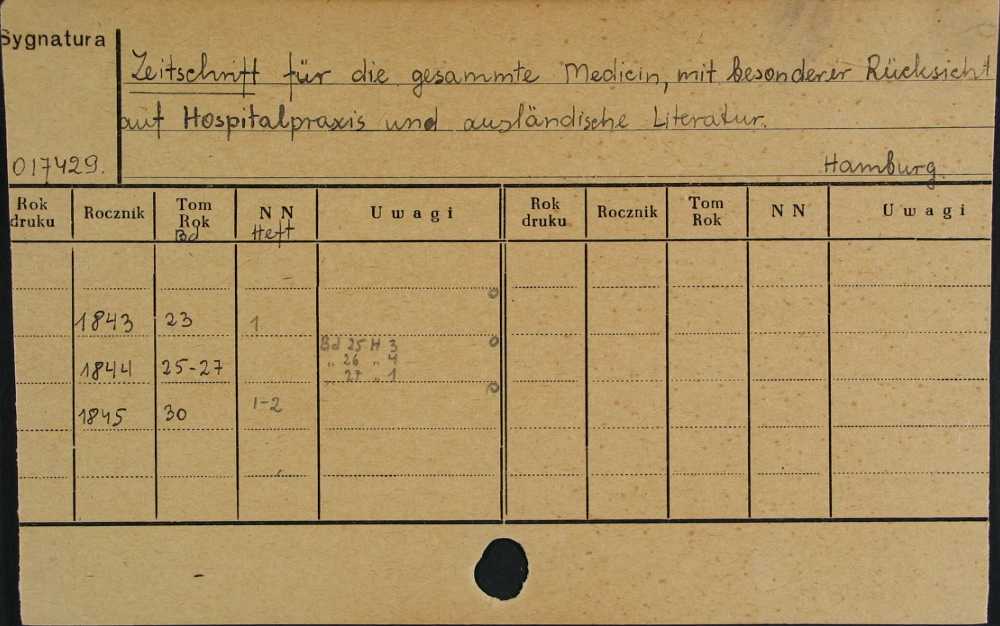 Sygnatura
Zeitschrift für die gesammte Medicin, mit besonderer Rücksicht
auf Hospitalpraxis und ausländische Literatur.
017429. Hamburg.
Rok druku Rocznik Tom Rok Bd NN Heft Uwagi Rok druku Rocznik Tom Rok NN Uwagi
1843 23 1
Bd 25 H 3
" 26 " 4
1844 25-27
" 27 " 1
1845 30 1-2